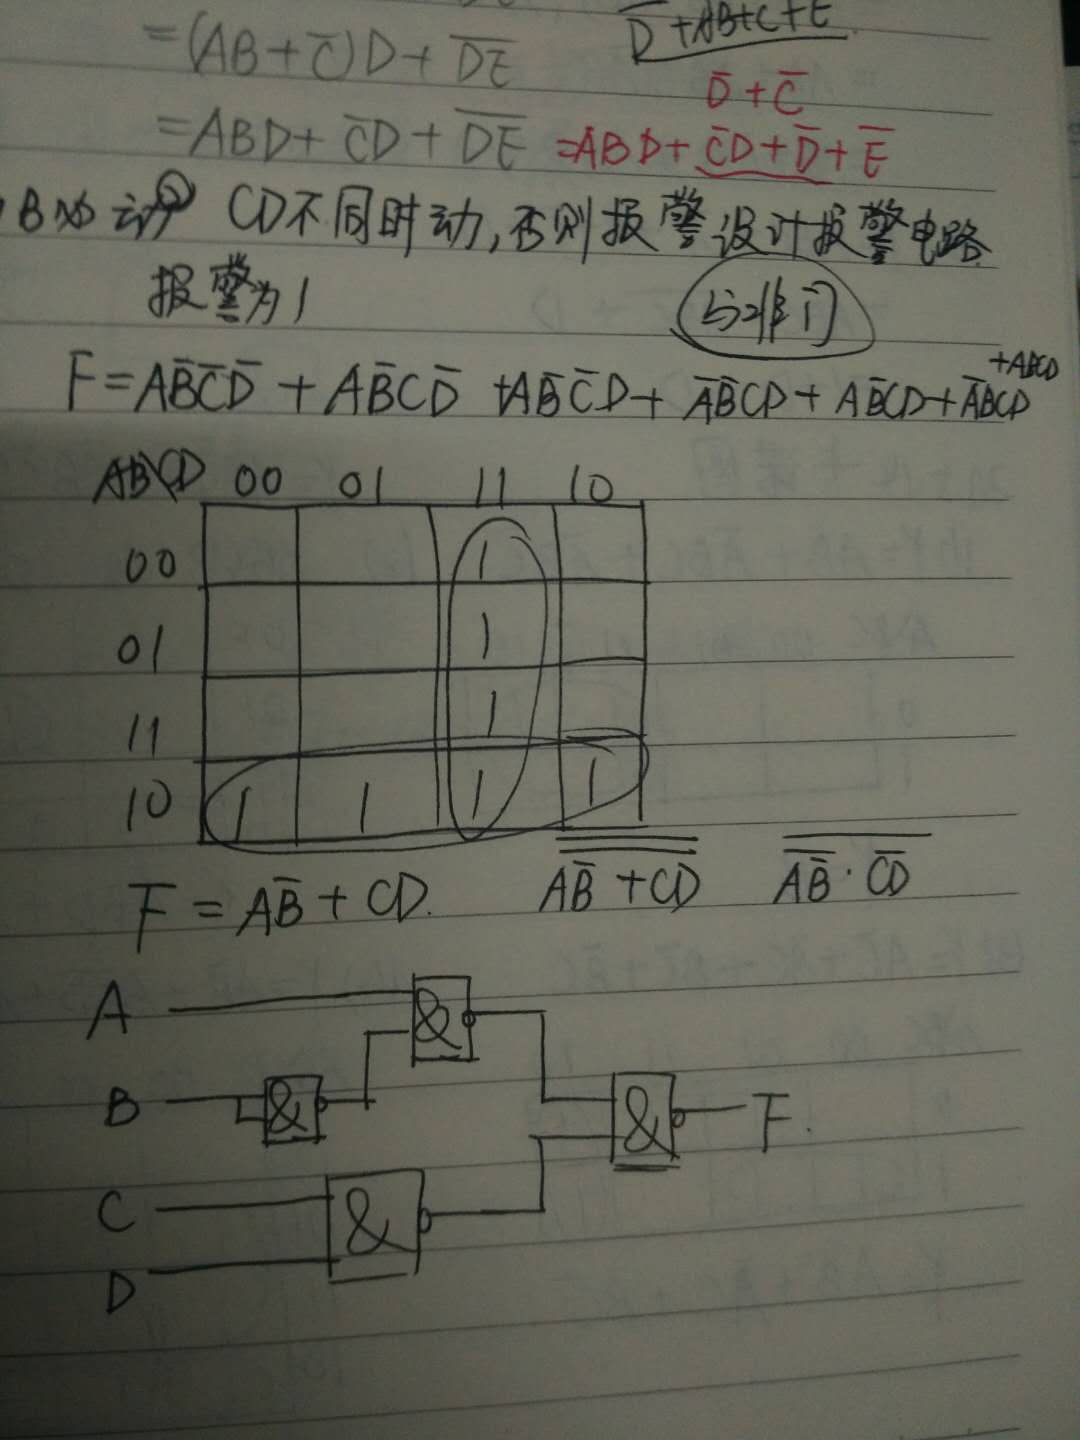 D̅+AB+C+E
=(AB+C̅)D+D̅E̅
D̅+C̅
=ABD+C̅D+D̅E̅ =ABD+C̅D+D̅+E̅
B必动 CD不同时动,否则报警设计报警电路
报警为1 与非门
F=AB̅C̅D̅+AB̅CD̅+AB̅C̅D+A̅B̅CD+AB̅CD+A̅BCD+ABCD
AB\CD 00 01 11 10
00 1
01 1
11 1
10 1 1 1 1
F=AB̅+CD. AB̅+CD AB̅·CD
A & 
B & & F.
C &
D